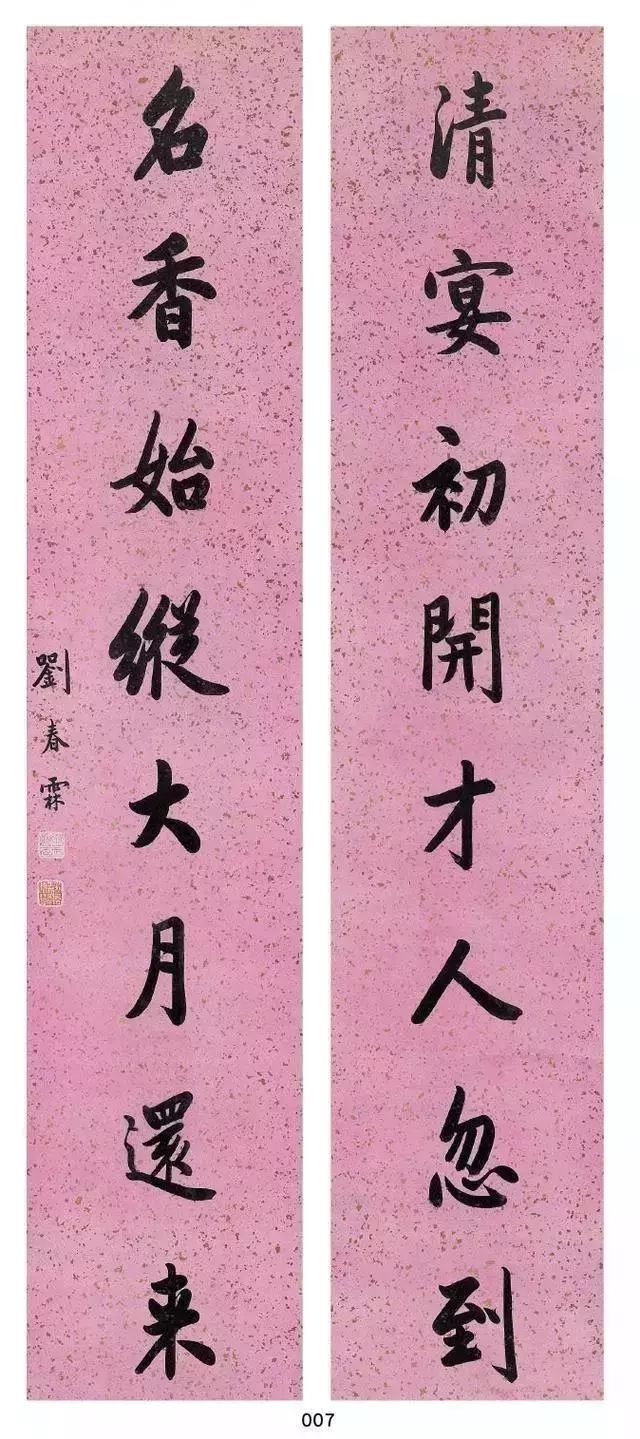 清宴初開才人忽到
名香始縱大月還来
劉春霖
007